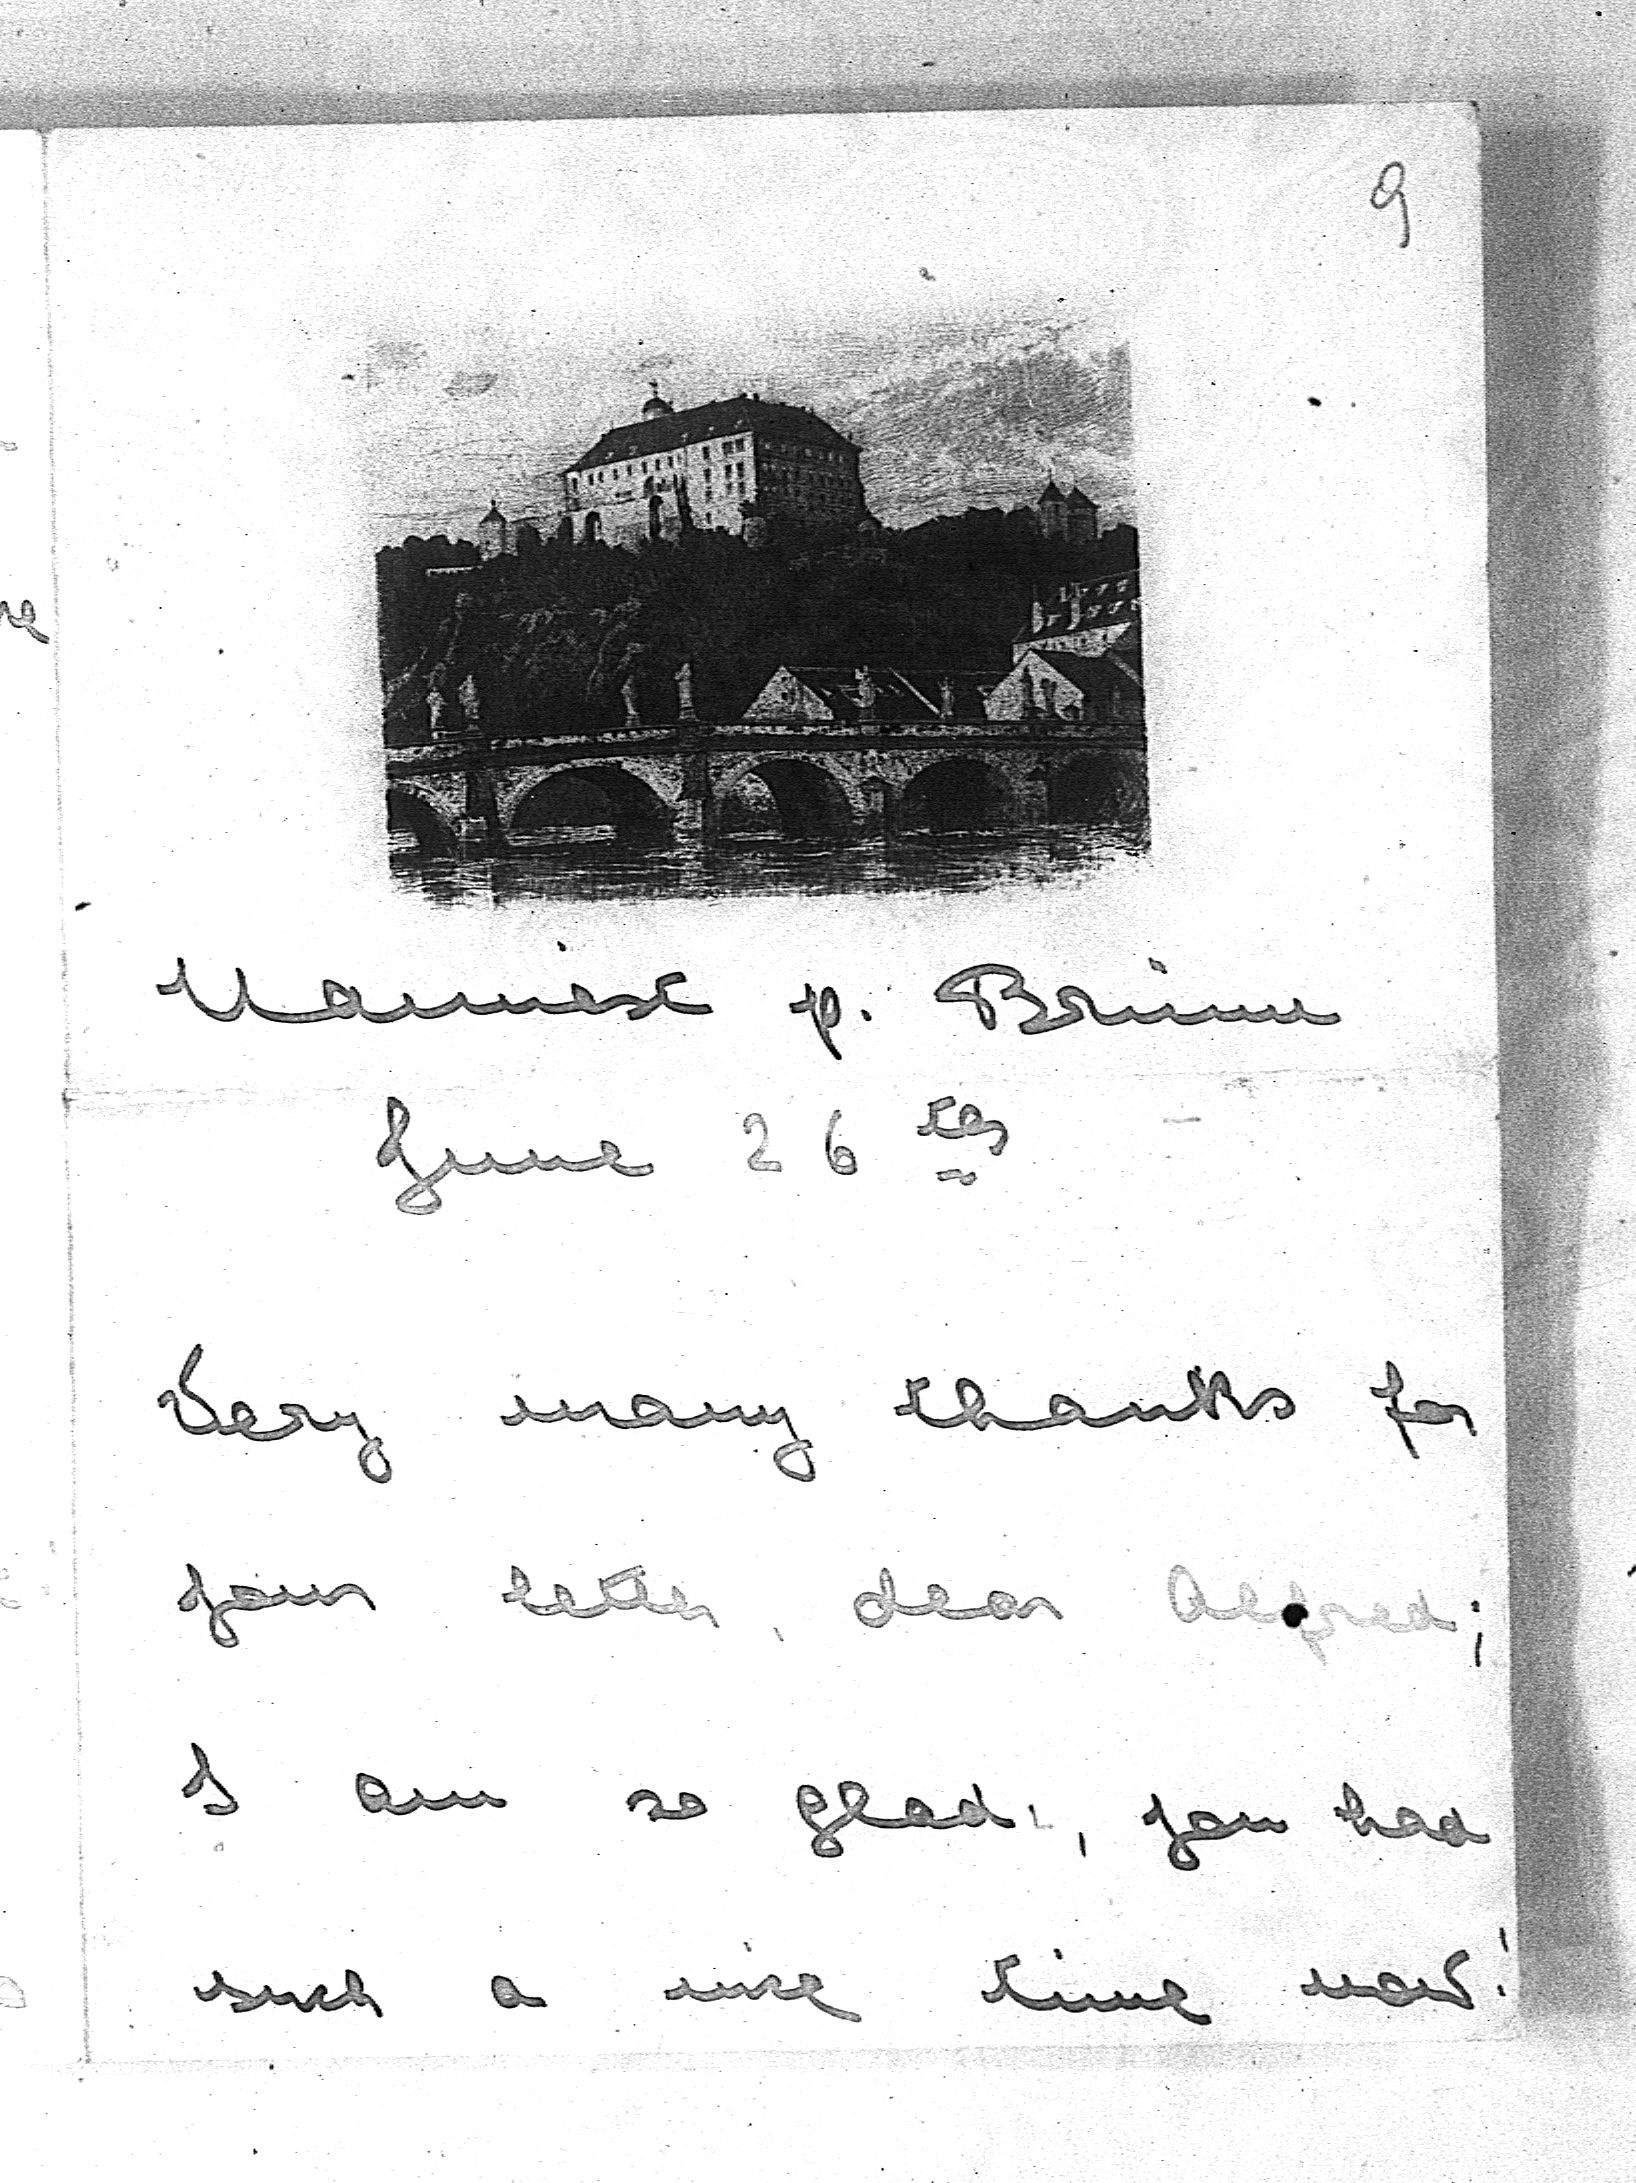 9
Namiest p. Brünn
June 26th
Very many thanks for
your letter, dear Alfred;
I am so glad, you had
such a nice time now!